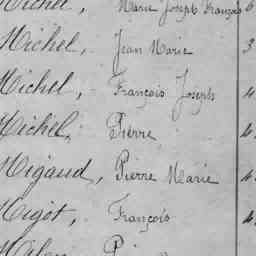 Michel, Marie Joseph François 6
Michel, Jean Marie 3
Michel, François Joseph 4
Michel, Pierre 4
Migaud, Pierre Marie 4
Migot, François 4